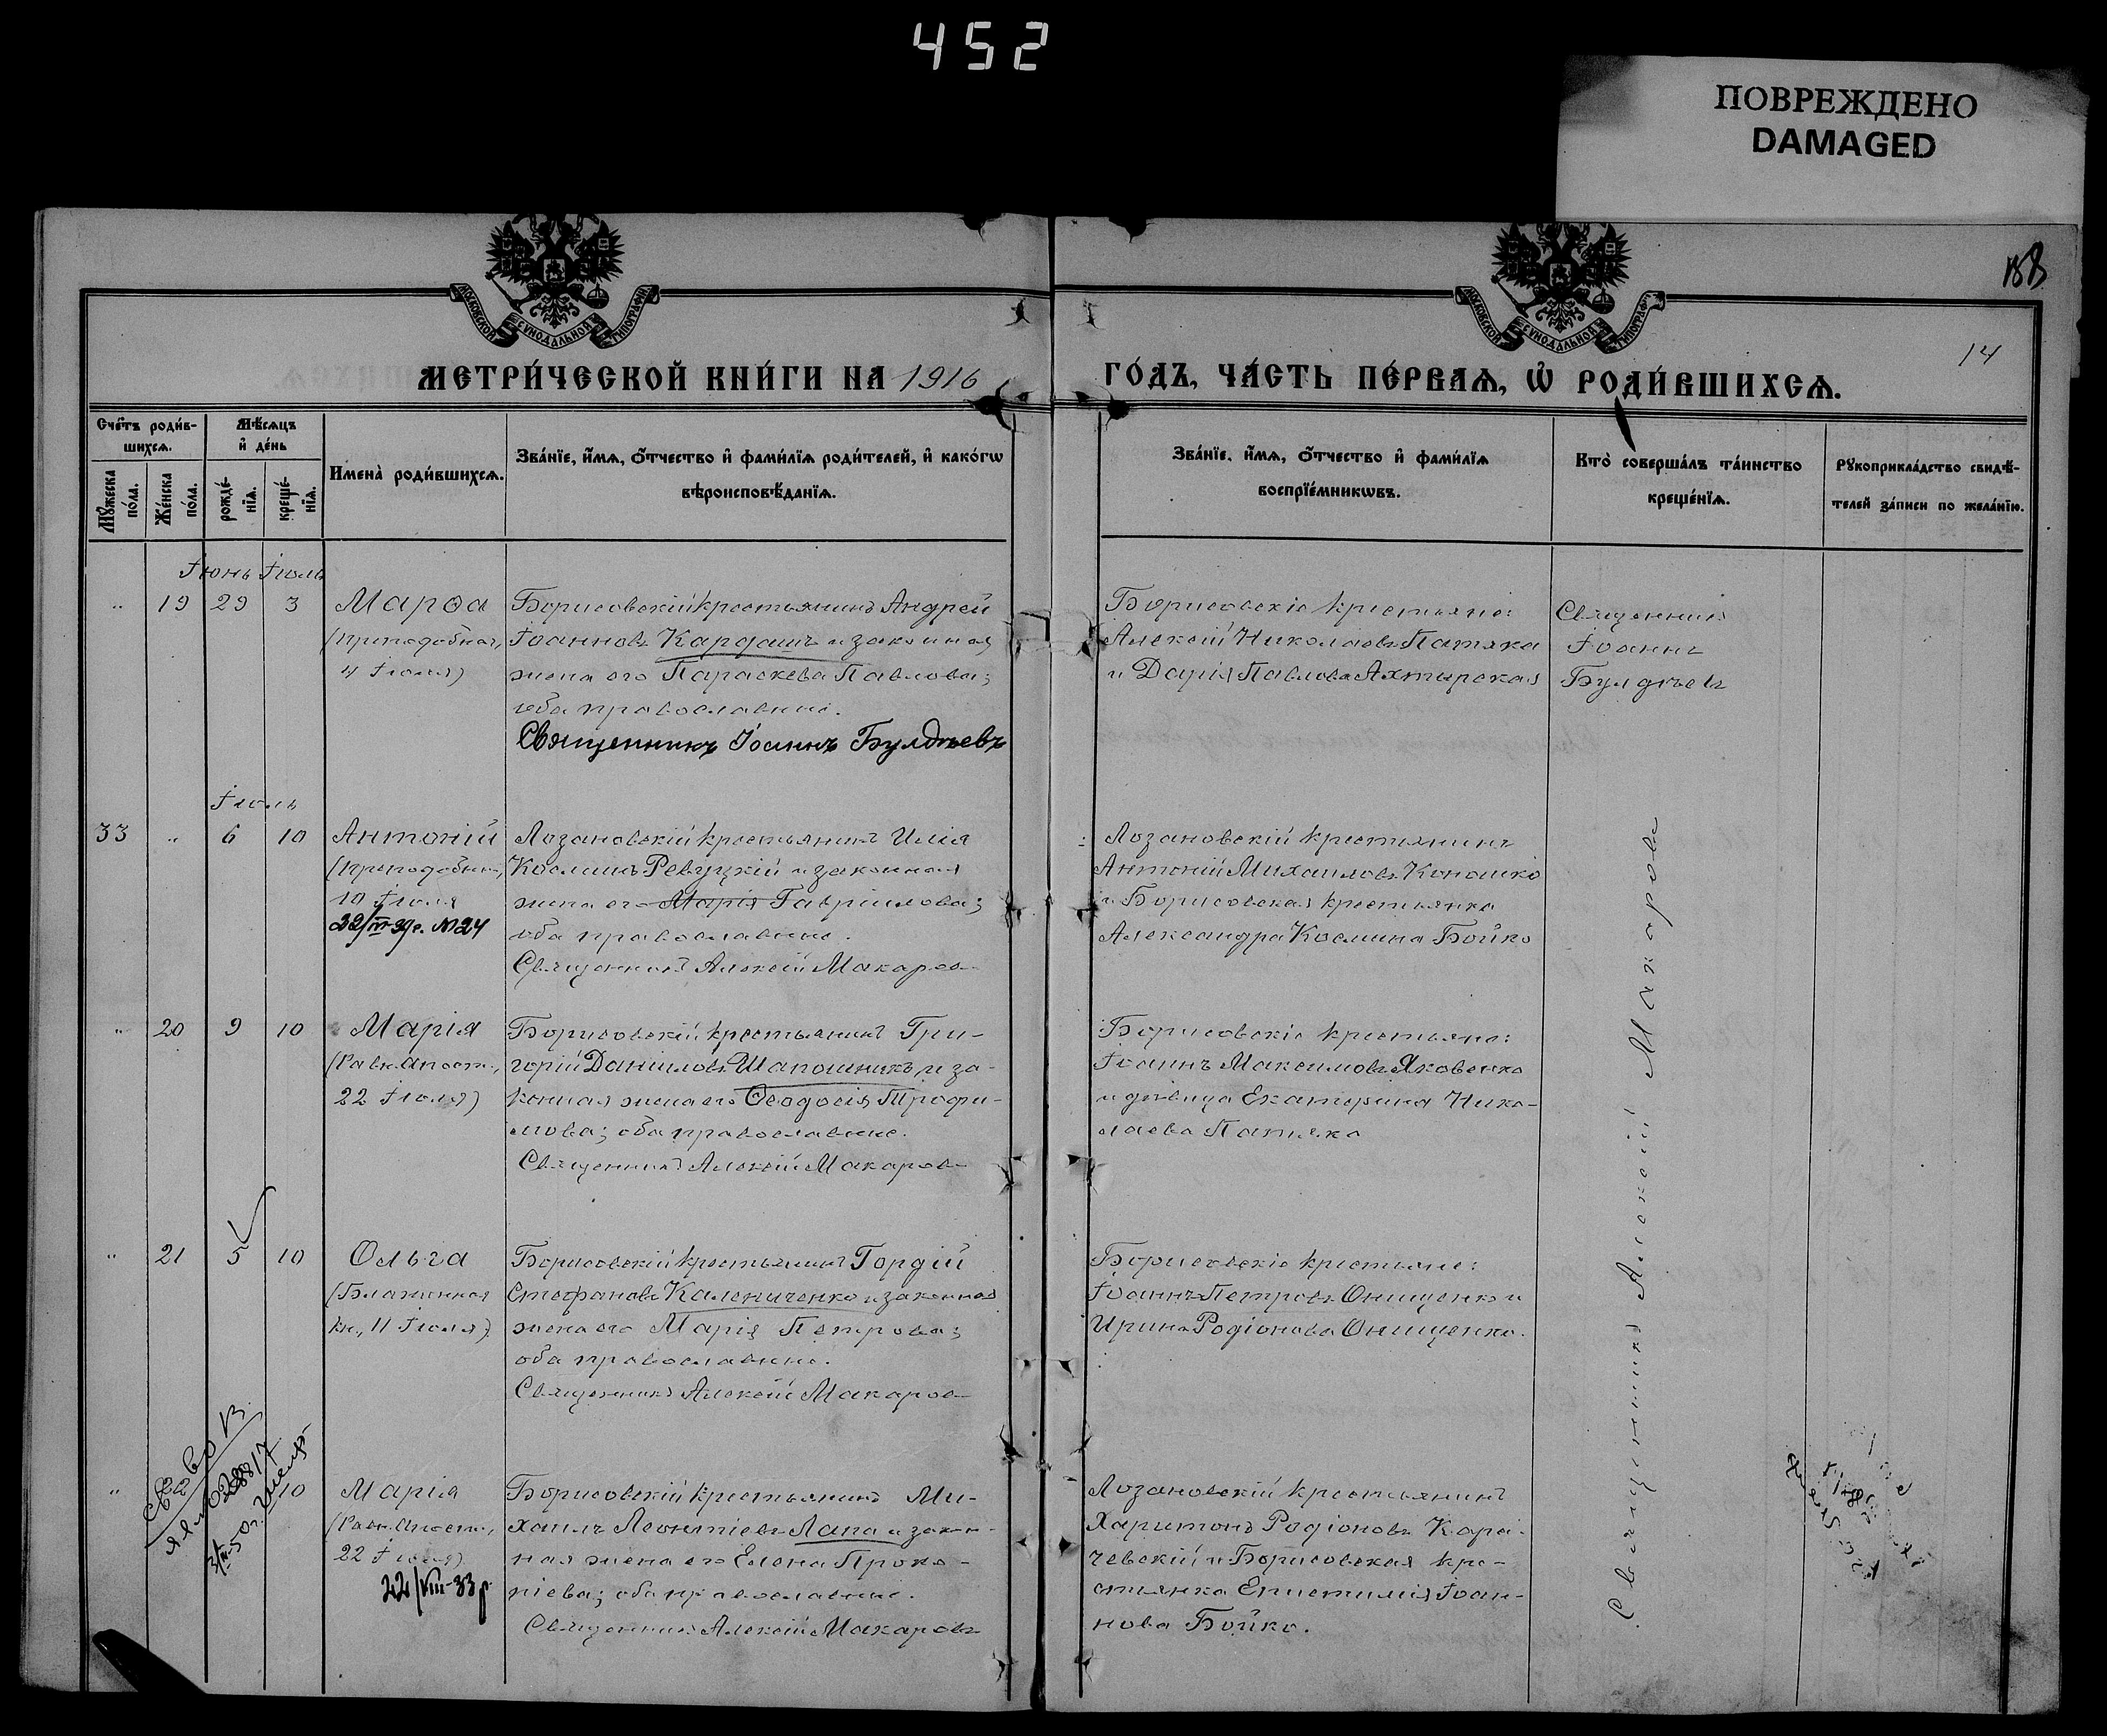 452
ПОВРЕЖДЕНО
DAMAGED
МОСКОВСКОЙ СУНОДАЛЬНОЙ ТИПОГРАФІИ
МОСКОВСКОЙ СУНОДАЛЬНОЙ ТИПОГРАФІИ
14
МЕТРИ́ЧЕСКОЙ КНИ́ГИ НА 1916 ГО́ДЪ, ЧА́СТЬ ПЕ́РВАѦ, Ѡ҆ РОДИ́ВШИХСѦ.
Сче́тъ роди́в-
шихсѧ.
Мꙋ́жеска по́ла.
Же́нска по́ла.
Мѣ́сѧцъ
и҆ де́нь
рожде́-
нїѧ.
креще́-
нїѧ.
Имена̀ роди́вшихсѧ.
Зва́нїе, и҆́мѧ, ѻ҆́тчество и҆ фами́лїѧ роди́телей, и҆ како́гѡ
вѣроисповѣ́данїѧ.
Зва́нїе, и҆́мѧ, ѻ҆́тчество и҆ фами́лїѧ
воспрїе́мникѡвъ.
Кто̀ соверша́лъ та́инство
креще́нїѧ.
Рꙋкоприкла́дство свидѣ́-
телей за́писи по жела́нїю.
Іюнь Іюль
" 19 29 3
Марѳа
(преподобная,
4 Іюля)
Борисовскій крестьянинъ Андрей
Іоанновъ Кардашъ и законная
жена его Параскева Павлова;
оба православные.
Священникъ Іоаннъ Булдѣевъ
Борисовскіе крестьяне:
Алексій Николаевъ Патяка
и Дарія Павлова Ахтырская
Священникъ
Іоаннъ
Булдѣевъ
Іюль
33 " 6 10
Антоній
(преподобный,
10 Іюля
Лозановскій крестьянинъ Илія
Косминъ Ревуцкій и законная
жена его Марія Гавріилова;
оба православные.
Священникъ Алексій Макаровъ
Лозановскій крестьянинъ
Антоній Михаиловъ Конашко
и Борисовская крестьянка
Александра Космина Бойко
" 20 9 10
Марія
(Равн. Апост.,
22 Іюля)
Борисовскій крестьянинъ Гри-
горій Даніиловъ Шапошникъ и за-
конная жена его Ѳеодосія Трофи-
мова; оба православные.
Священникъ Алексій Макаровъ
Борисовскіе крестьяне:
Іоаннъ Максимовъ Яковенко
и дѣвица Екатерина Нико-
лаева Патяка
" 21 5 10
Ольга
(Блаженная
кн., 11 Іюля)
Борисовскій крестьянинъ Гордій
Стефановъ Калениченко и законная
жена его Марія Петрова;
оба православные.
Священникъ Алексій Макаровъ
Борисовскіе крестьяне:
Іоаннъ Петровъ Онищенко и
Ирина Родіонова Онищенко.
" 22 10
Марія
(Равн. Апост.,
22 Іюля)
22/VIII-33 р
Борисовскій крестьянинъ Ми-
хаилъ Леонтіевъ Лапа и закон-
ная жена его Елена Проко-
піева; оба православные.
Священникъ Алексій Макаровъ
Лозановскій крестьянинъ
Харитонъ Родіоновъ Кара-
чевскій и Борисовская кре-
стьянка Епистимія Іоан-
нова Бойко.
Священникъ Алексій Макаровъ